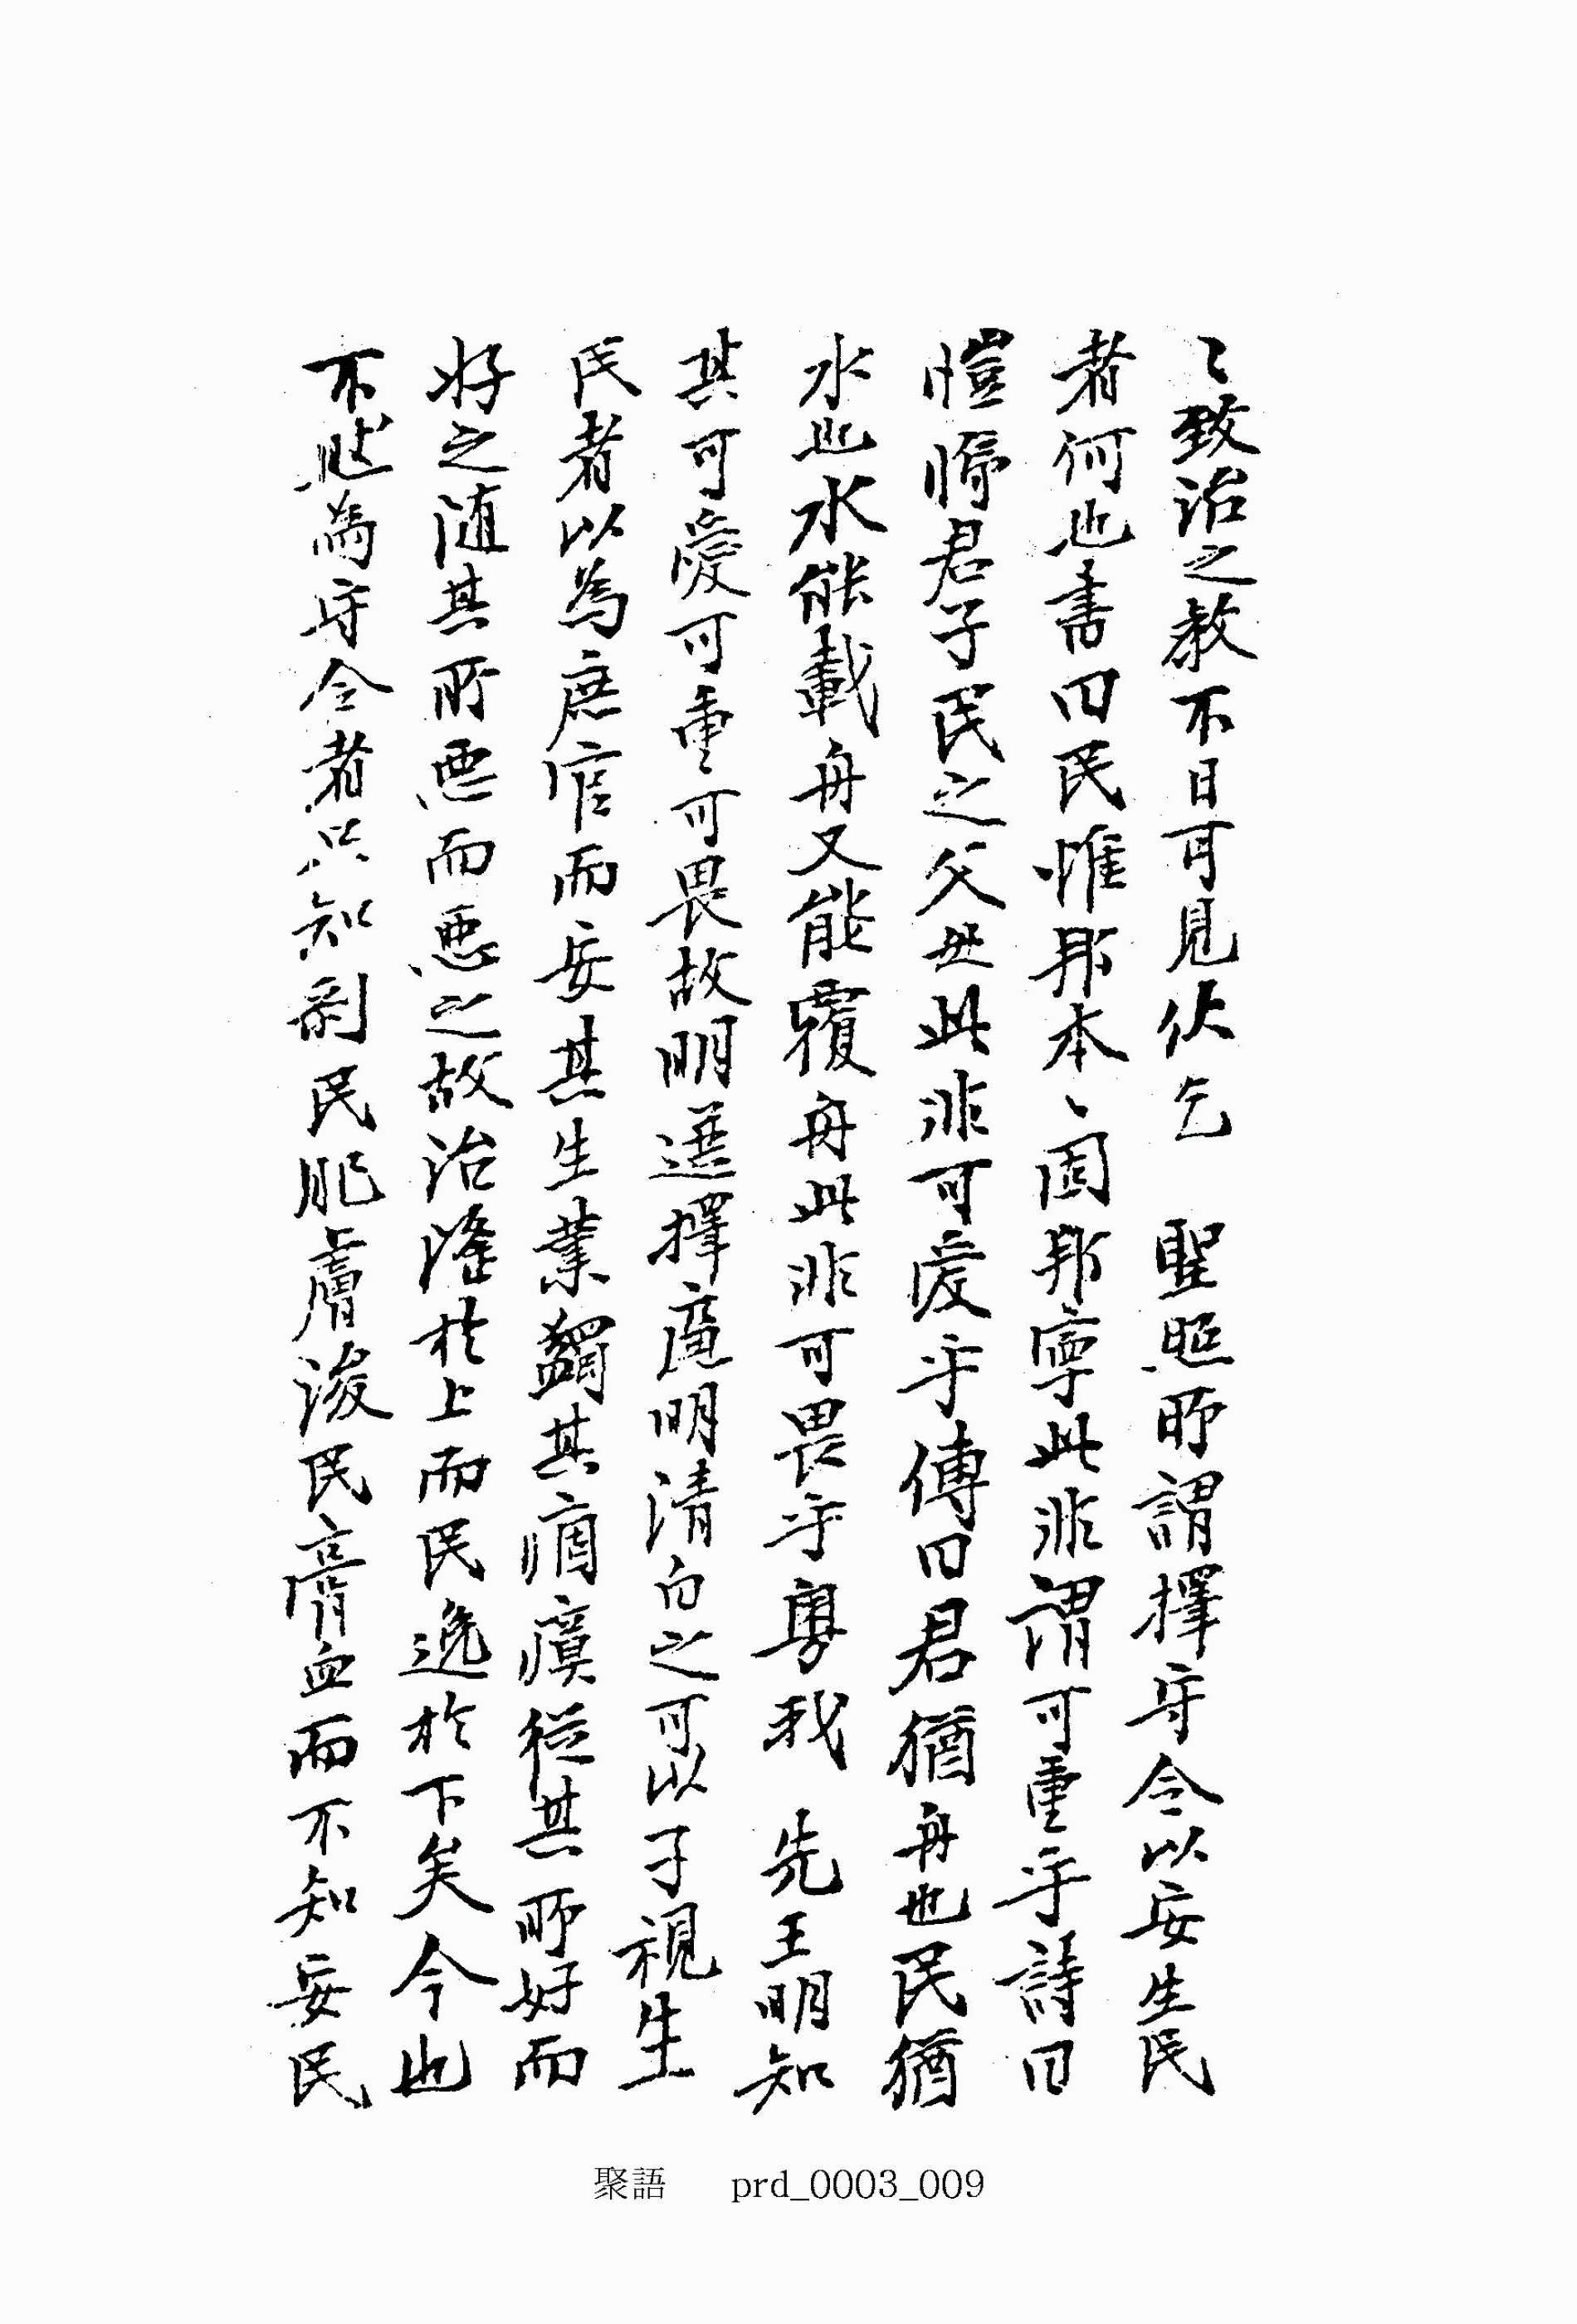 〻致治之效不日可見伏乞　聖照所謂擇守令以安生民
者何也書曰民惟邦本〻固邦寧此非謂可重乎詩曰
愷悌君子民之父母此非可愛乎傳曰君猶舟也民猶
水也水能載舟又能覆舟此非可畏乎粤我　先王明知
其可愛可重可畏故明選擇廉明清白之可以子視生
民者以為庶官而安其生業蠲其痼瘼從其所好而
好之随其所惡而惡之故治隆於上而民逸於下矣今也
不然為守令者只知剥民肥膚浚民膏血而不知安民
聚語　prd_0003_009